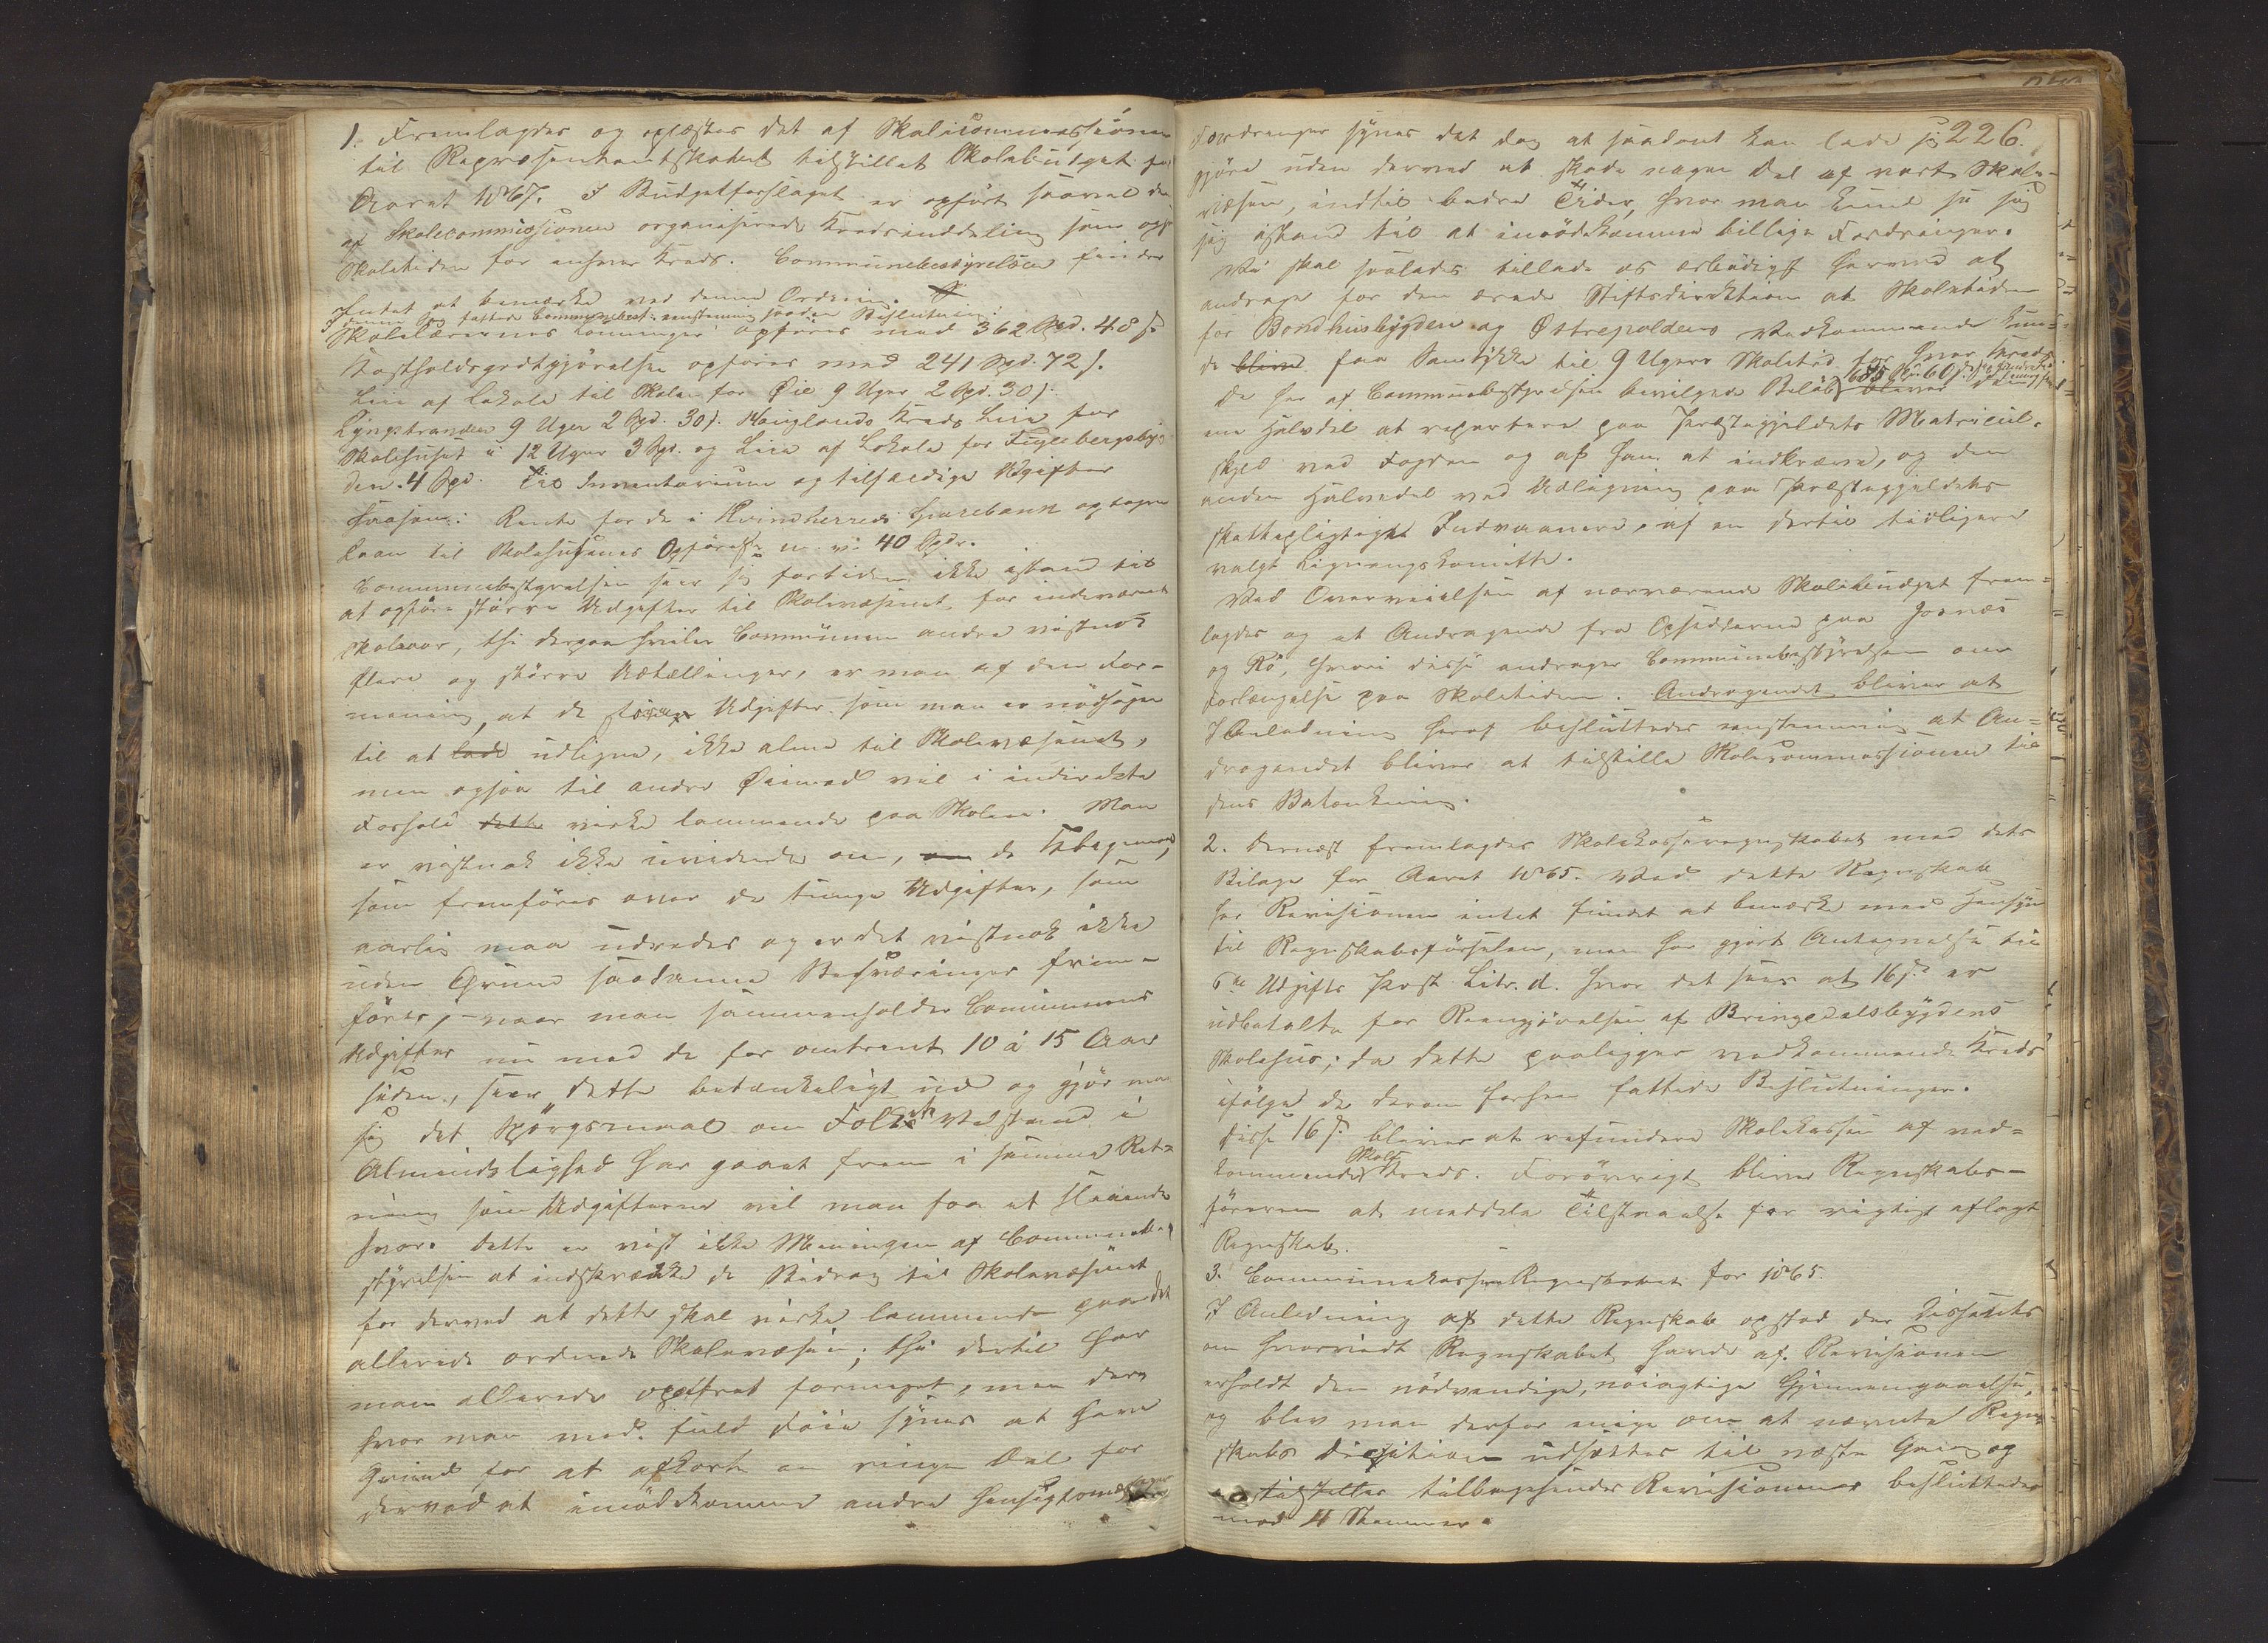 1. Fremlagdes og oplæstes det af Skolecommissionen
til Repræsentantskabet tilstillet Skolebudget for
Aaret 1867. I Budgetforslaget er opført saavel den
af Skolecommissionen organiserede Kredsinddeling som ogsaa
Skoletiden for enhver Kreds. Communebestyrelsen finder
Intet at bemærke ved denne Ordning.
I denne Sag fattede Communebest. enstemmig saadan Beslutning:
Skolelærernes Lønninger opføres med 362 Spd. 48 s.
Kostholdsgodtgjørelsen opføres med 241 Spd. 72 s.
Leie af Lokale til Skolen for Øie 9 Uger 2 Spd. 30 s.
Lyngstranden 9 Uger 2 Spd. 30 s. Hauglands Kreds Leie for
Skolehuset i 12 Uger 3 Spd. og Leie af Lokale for Fuglebergsbyg
den 4 Spd. Til Inventarium og tilfældige Udgifter
saasom: Rente for de i Kvindherreds Sparebank optagne
Laan til Skolehusenes Opførelse m. v. 40 Spdr.
Communebestyrelsen seer sig fortiden ikke istand til
at opføre større Udgifter til Skolevæsenet for indeværende
Skoleaar, thi derpaa hviler Communen andre vistnok
flere og større Udtællinger, er man af den For-
mening, at de større Udgifter som man er nødsaget
til at lade udligne, ikke alene til Skolevæsenet,
men ogsaa til andre Øiemed vil i indirekte
Forhold dette virke lammende paa Skolen. Man
er vistnok ikke uvidende om, om de Klagemaal,
som fremføres over de tunge Udgifter, som
aarlig maa udredes og er det vistnok ikke
uden Grund saadanne Besværinger frem-
føres, - naar man sammenholder Communens
Udgifter nu med de for omtrent 10 à 15 Aar
siden, seer dette betænkeligt ud og gjør man
sig det Spørgsmaal om Folkets Velstand i
Almindelighed har gaaet frem i samme Ret-
ning som Udgifterne vil man faa et slaaende
Svar. Dette er vist ikke Meningen af Communebe-
styrelsen at indskrænke de Bidrag til Skolevæsenet
for derved at dette skal virke lammende paa det
allerede ordnede Skolevæsen; thi dertil har
man allerede opofret formeget, men der
hvor man med fuld Føie synes at have
Grund for at afkorte en ringe Deel for
derved at imødekomme andre hensigtsmæssige
Fordringer synes det dog at saadant kan lade sig 226.
gjøre uden derved at skade nogen Del af vort Skole-
væsen, indtil bedre Tider, hvor man kunde se sig
sig istand til at imødekomme billige Fordringer.
Vi skal saaledes tillade os ærbødigst herved at
andrage for den ærede Stiftsdirektion at Skoletiden
for Bondhusbygden og Østrepoldens Vedkommende kun-
de blive faa Samtykke til 9 Ugers Skoletid for hver Kreds.
De her af Communebestyrelsen bevilgede Beløb 685 Spd. 60 s. bliver den
ene Halvdel at repartere paa Præstegjeldets Matricul-
skyld ved Fogden og af ham at indkræve, og den
anden Halvedel ved Udligning paa Præstegjeldets
skattepligtige Indvaanere, af en dertil tidligere
valgt Ligningskomitte.
Ved Overveielsen af nærværende Skolebudget frem-
lagdes og et Andragende fra Opsidderne paa Gosnæs
og Rö, hvori disse andrager Communebestyrelsen om
Forlængelse paa Skoletiden. Andragendet bliver at
I Anledning heraf besluttedes enstemmig at An-
dragendet bliver at tilstille Skolecommissionen til
dens Betænkning.
2. Dernæst fremlagdes Skolekasseregnskabet med dets
Bilage for Aaret 1865. Ved dette Regnskab
har Revisionen intet fundet at bemærke med Hensyn
til Regnskabsførselen, men har gjort Antegnelse til
6te Udgifts Post Litr. d. hvor det sees at 16 s. er
udbetalte for Reengjørelsen af Bringedalsbygdens
Skolehus; da dette paaligger vedkommende Kreds
ifølge de derom forhen fattede Beslutninger.
Disse 16 s. bliver at refundere Skolekassen af ved-
kommende Skolekreds. Forøvrigt bliver Regnskabs-
føreren at meddele Tilstaaelse for rigtigt aflagt
Regnskab.
3. Communekasse Regnskabet for 1865.
I Anledning af dette Regnskab opstod der Dissents
om hvorvidt Regnskabet havde af Revisionen
erholdt den nødvendige, nøiagtige Gjennemgaaelse,
og blev man derfor enige om at nævnte Regn-
skabs Decision udsættes til næste Gang og
tilstilles tilbagesendes Revisionen besluttedes
med 4 Stemmer.